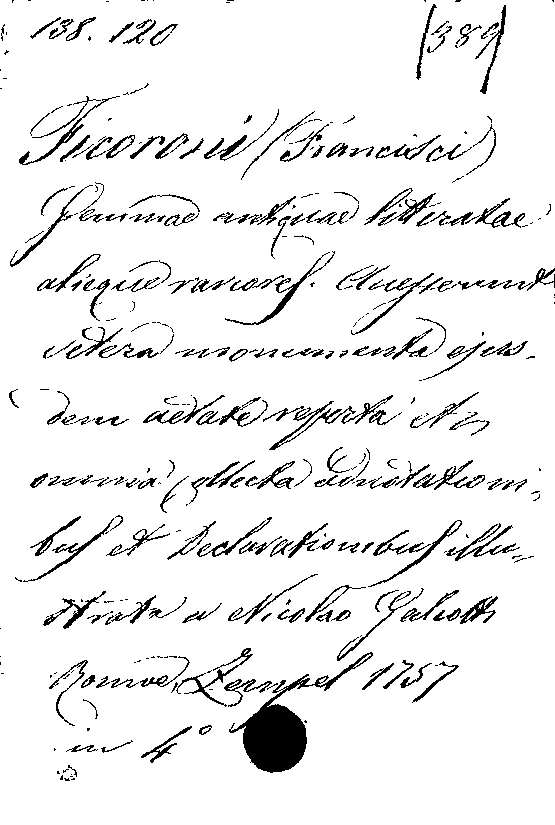 138. 120
(389)
Ficoroni (Francisci)
Gemmae antiquae litteratae
aliaeque rariores. Accesserunt
vetera monumenta ejus-
dem aetate reperta et
omnia collecta adnotationi-
bus et Declarationibus illu-
strata a Nicolao Galeotti
Romae, Zempel 1757
in 4°